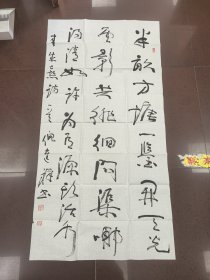 半畝方塘一鑒開天光
雲影共徘徊問渠哪
得清如許為有源頭活水
來朱熹詩一首 倪書